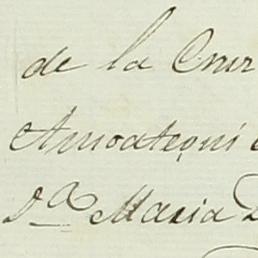 de la Cruz
Amoategui
D.ª Maria